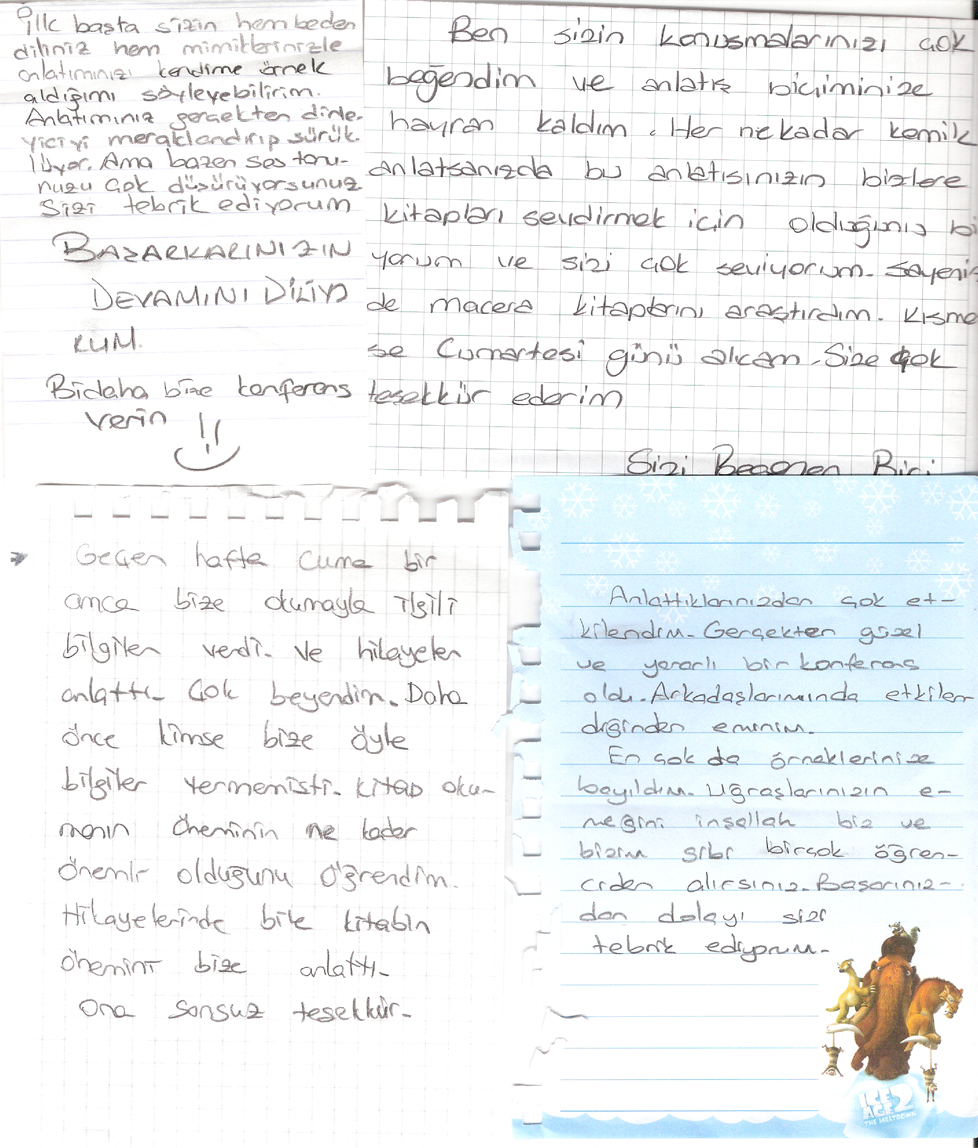 İlk basta sizin hem beden
diliniz hem mimiklerinizle
anlatımınızı kendime örnek
aldığımı söyleyebilirim.
Anlatımınız gerçekten dinle-
yiciyi meraklandırıp sürük-
lüyor. Ama bazen ses tonu-
nuzu çok düşürüyorsunuz
Sizi tebrik ediyorum
BAŞARILARINIZIN
DEVAMINI DİLİYO
RUM.
Bidaha bize konferans
verin
Ben sizin konuşmalarınızı çok
beğendim ve anlatış biçiminize
hayran kaldım. Her nekadar komik
anlatsanızda bu anlatısınızın bizlere
kitapları sevdirmek için olduğunu bi
yorum ve sizi çok seviyorum. Sayeniz
de macera kitaplarını araştırdım. Kısme
se Cumartesi günü alıcam. Size çok
teşekkür ederim
Sizi Begenen Biri
Geçen hafta cuma bir
amca bize okumayla ilgili
bilgiler verdi. Ve hikayeler
anlattı. Çok beyendim. Daha
önce kimse bize öyle
bilgiler vermemisti. Kitap oku-
manın öneminin ne kadar
önemli olduğunu öğrendim.
Hikayelerinde bile kitabın
önemini bize anlattı.
Ona sonsuz teşekkür.
Anlattıklarınızdan çok et-
kilendim. Gerçekten güzel
ve yararlı bir konferans
oldu. Arkadaşlarımında etkilen
diğinden eminim.
En çok da örneklerinize
bayıldım. Uğraşlarınızın e-
meğini inşallah biz ve
bizim gibi birçok öğren-
ciden alırsınız. Başarınız-
dan dolayı sizi
tebrik ediyorum.
ICE
AGE 2
THE MELTDOWN